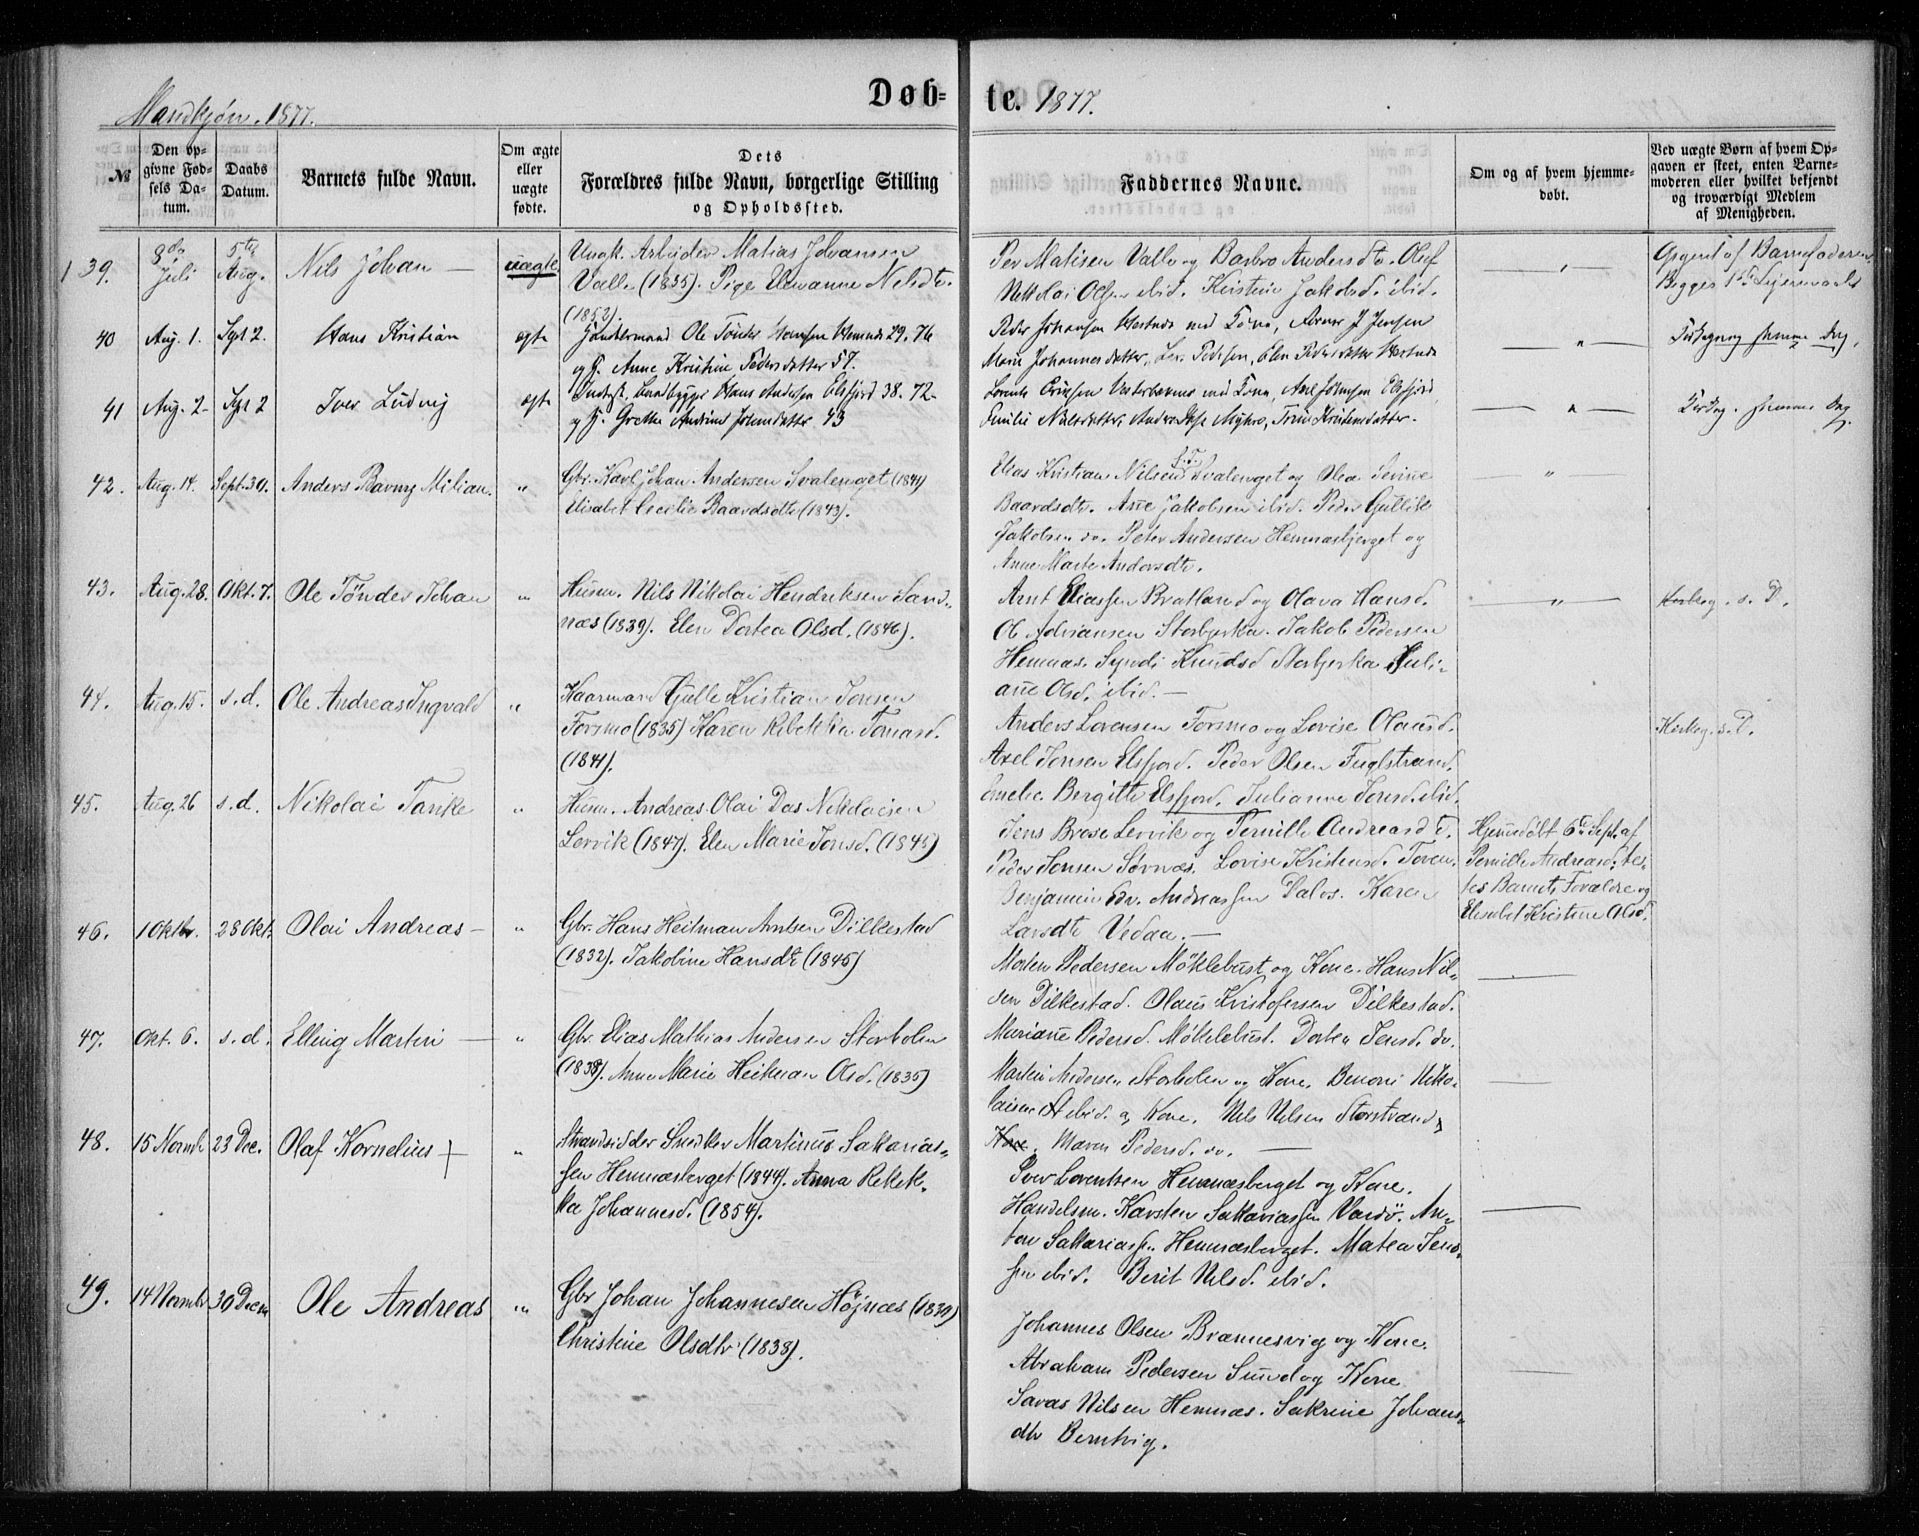 Mandkjøn. 1877.
Døb- te. 1877.
№
Den opgivne Fødsels Datum.
Daabs Datum.
Barnets fulde Navn.
Om ægte eller uægte fødte.
Dets Forældres fulde Navn, borgerlige Stilling og Opholdssted.
Faddernes Navne.
Om og af hvem hjemmedøbt.
Ved uægte Børn af hvem Opgaven er skeet, enten Barnemoderen eller hvilket bekjendt og troværdigt Medlem af Menigheden.
39. 8de Juli 5te Aug. Nils Johan — uægte
Ungk. Arbeider Matias Johansen
Valle (1835). Pige Nilsdt.
(1852).
Per Matisen Valle og Barbro Andersdt. Oluf
Nikolai Olsen ibid. Kristine Jakobsd. ibid.
Opgivet af Barnefaderen
Begges 1ste Lejermaal
40 Aug. 1. Sept 2. Hans Kristian ægte
Gaardmand Ole Tønder Hansen Hemnæs 29. 76
og H. Anne Kristine Pedersdatter 37.
Peder Johansen med Kone, J Jensen
Marie Johannesdatter, Pedersen, Elen Pedersdatter
Kirkegang samme Dag.
41 Aug. 2. Sept 2 Iver Ludvig ægte
Hans Andersen Elsfjord 38. 72
og H. Grethe Andrine Johnsdatter 43
Lorents Ericksen med Kone, Axel Johnsen Elsfjord,
Emilie Nilsdatter, Trine Kristensdatter.
Kirkeg. samme Dag.
42. Aug. 14. Sept. 30. Anders Baring Milian "
Gbr. Karl Johan Andersen Svalenget (1841)
Elisabet Cecilie Baardsdtr (1843).
Elias Kristian Nilsen Svalenget og Olea Sevine
Baardsdtr. Ane Jakobsen ibid. Peder Gullik
Jakobsen do. Peter Andersen Hemnæsbjerget og
Anne Marte Andersdtr.
43. Aug. 28. Okt. 7. Ole Tönder Johan "
Husm. Nils Nikolai Hendriksen Sand-
næs (1839). Elen Dortea Olsd. (1846).
Arnt Eliassen Bratland og Olava Hansd.
Ol Adriansen Storbjerka. Jakob Pedersen
Hemnæs. Synøli Knudsd Storbjerka. Juli-
ane Olsd. ibid. —
Kirkeg. s. D.
44. Aug. 15. s. d. Ole Andreas Ingvald "
Kaarmand Gjelle Kristian Jonsen
Forsmo (1835) Karen Rebekka Tomasd.
(1841).
Anders Lorensen Forsmo og Lovise Olausd.
Axel Jonsen Elsfjord. Peder Olsen Fuglstrand.
Emelie Bergitte Elsfjord. Julianne Jonsd. ibid.
Kirkeg. s. D.
45. Aug. 26 s. d. Nikolai Tanke "
Husm. Andreas Olai Das Nikolaisen
Lervik (1847). Elen Marie Jonsd. (1845)
Jens Brose Lervik og Pernille Andreasdt.
Peder Jonsen Sørnæs. Lovise Kristensd. Toven.
Benjamin Edv. Andreassen Dalos. Karen
Larsdtr Vedaa. —
Hjemmedöbt 6te Sept. af
Pernille Andreasd. Tes-
tes Barnets Forældre og
Elisabet Kristine Olsd.
46. 1 Oktbr. 28 Okt. Olai Andreas — "
Gbr. Hans Heitman Arntsen Dilkestad
(1832). Jakobine Hansdtr (1845)
Morten Pedersen Möklebust og Kone. Hans Nil-
sen Dilkestad. Olaus Kristofersen Dilkestad.
Mariane Pedersd. Möklebust. Dortea Jensd. do.
47. Okt. 6. s. d. Elling Martin — "
Gbr. Elias Mathias Andersen Storholm
(1838). Anne Marie Heitman Olsd. (1835)
Martin Andersen Storholm og Kone. Benoni Niko-
laisen ibid. og Kone. Nils Nilsen Storstrand og
Kone. Maren Pedersd. do. —
48. 15 Novmbr 23 Dec. Olaf Kornelius + "
Strandsidder Snedker Martinus Sakarias-
sen Hemnæsberget (1844). Anna Rebek-
ka Johannesd. (1854).
Iver Lorentsen Hemnæsberget og Kone.
Handelsm. Karsten Sakariassen Vardö. An-
ton Sakariassen Hemnæsberget. Matea Jens-
sen ibid. Berit Nilsd. ibid.
49. 14 Novmbr 30 Decm Ole Andreas "
Gbr Johan Johannesen Höjnæs (1839)
Christine Olsdtr (1838).
Johannes Olsen Brænnesvig og Kone.
Abraham Pedersen Sund og Kone
Savas Nilsen Hemnæs. Sakrine Johans-
dtr Berntvig.